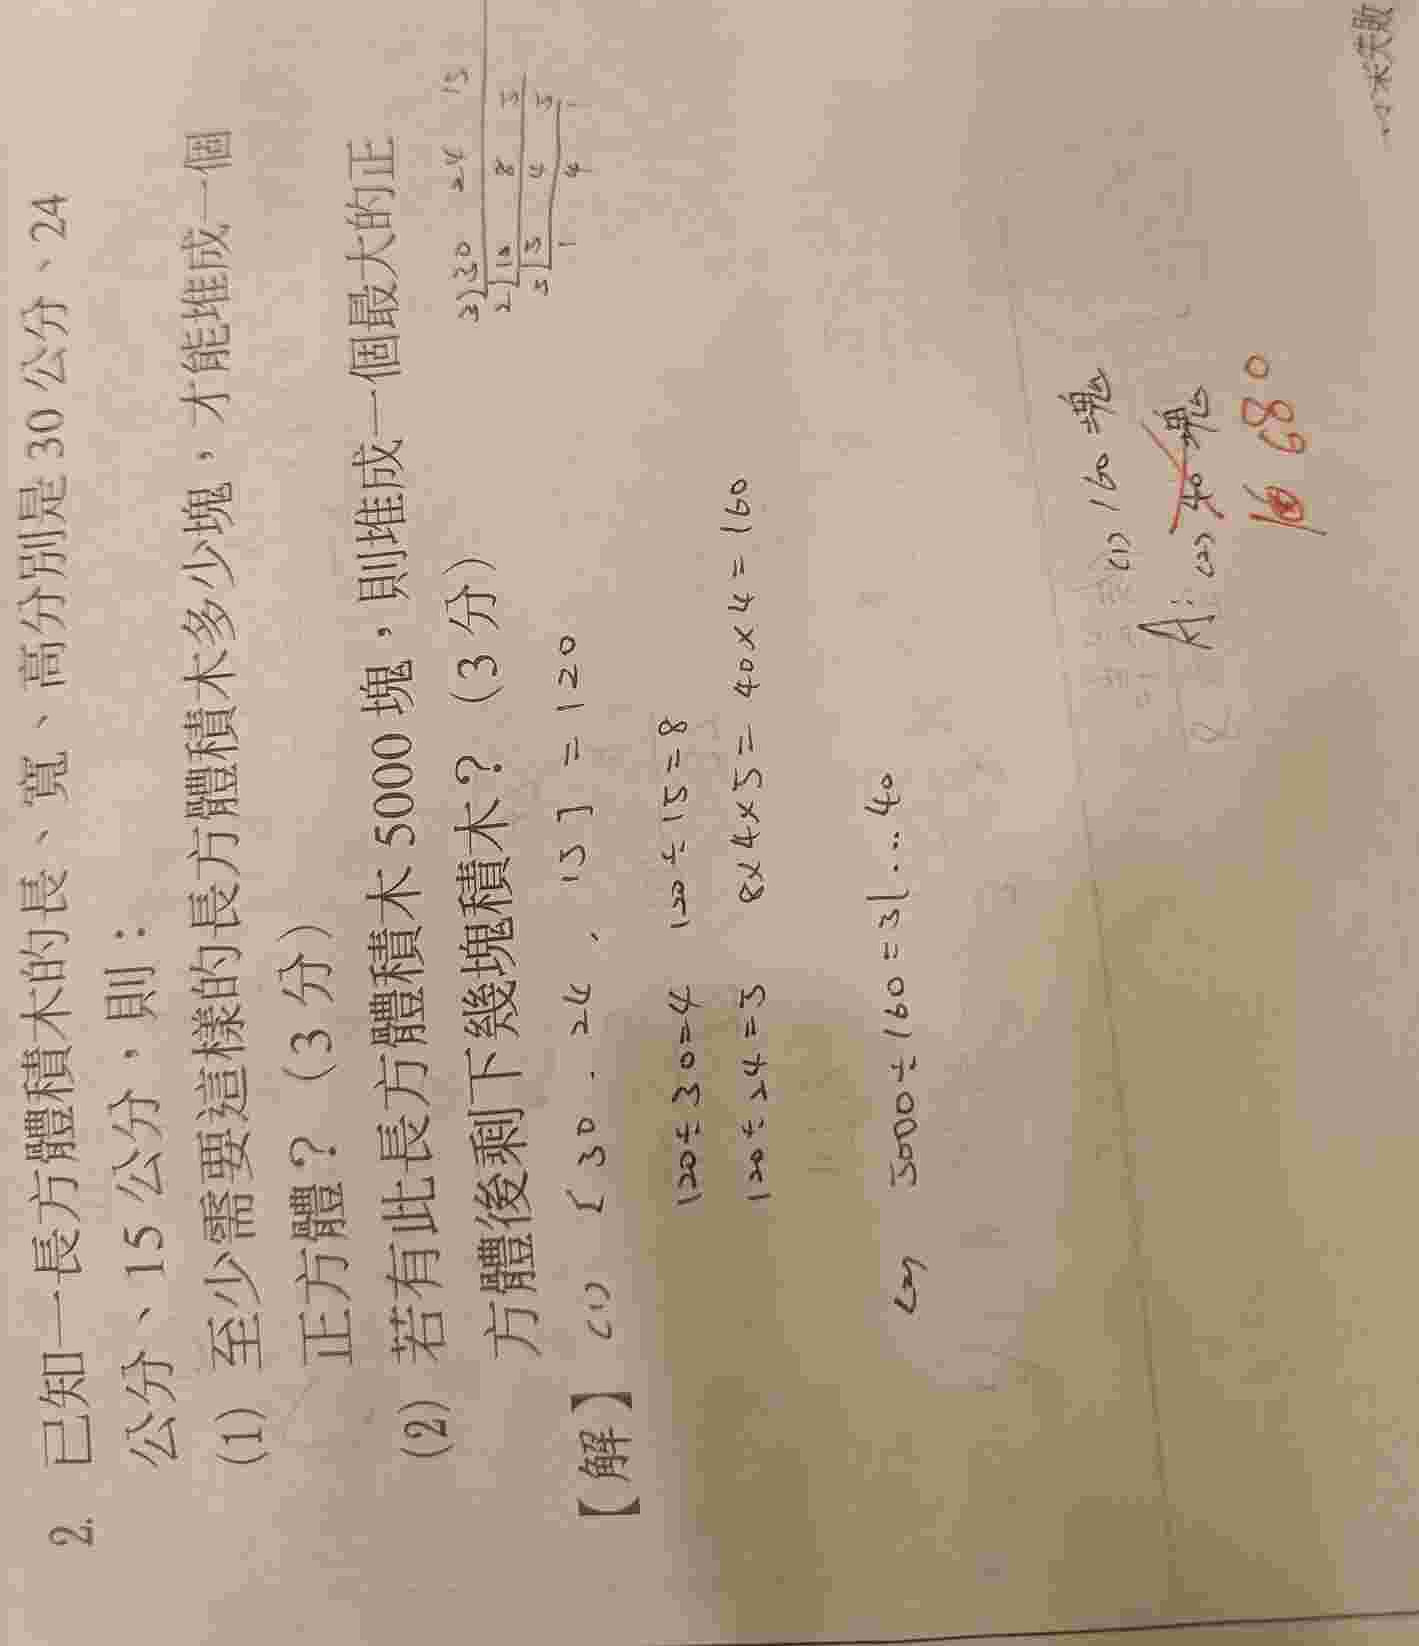 2. 已知一長方體積木的長、寬、高分別是 30 公分、24
公分、15 公分，則：
(1) 至少需要這樣的長方體積木多少塊，才能堆成一個
正方體？（3 分）
(2) 若有此長方體積木 5000 塊，則堆成一個最大的正
方體後剩下幾塊積木？（3 分）
3)30 24 15
2)10 8 5
5)5 4 5
1 4 1
【解】(1) [30.24.15]=120
120÷30=4 120÷15=8
120÷24=5 8×4×5=40×4=160
(2) 5000÷160=31…40
A: (1) 160 塊
(2) 40 塊
680
失敗